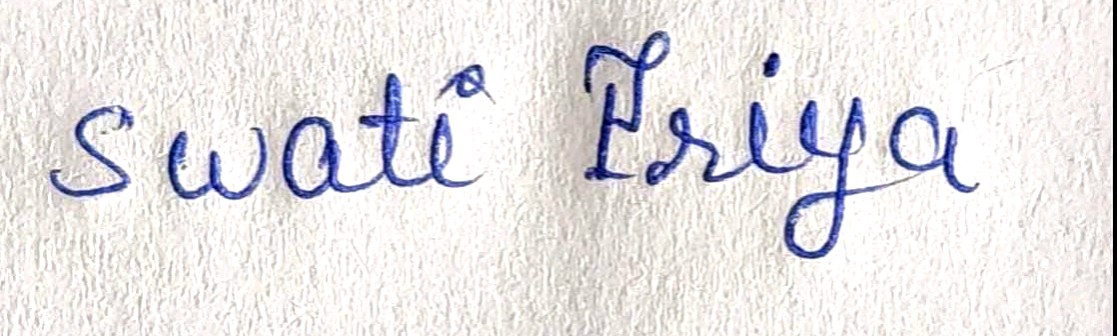 Swati Priya